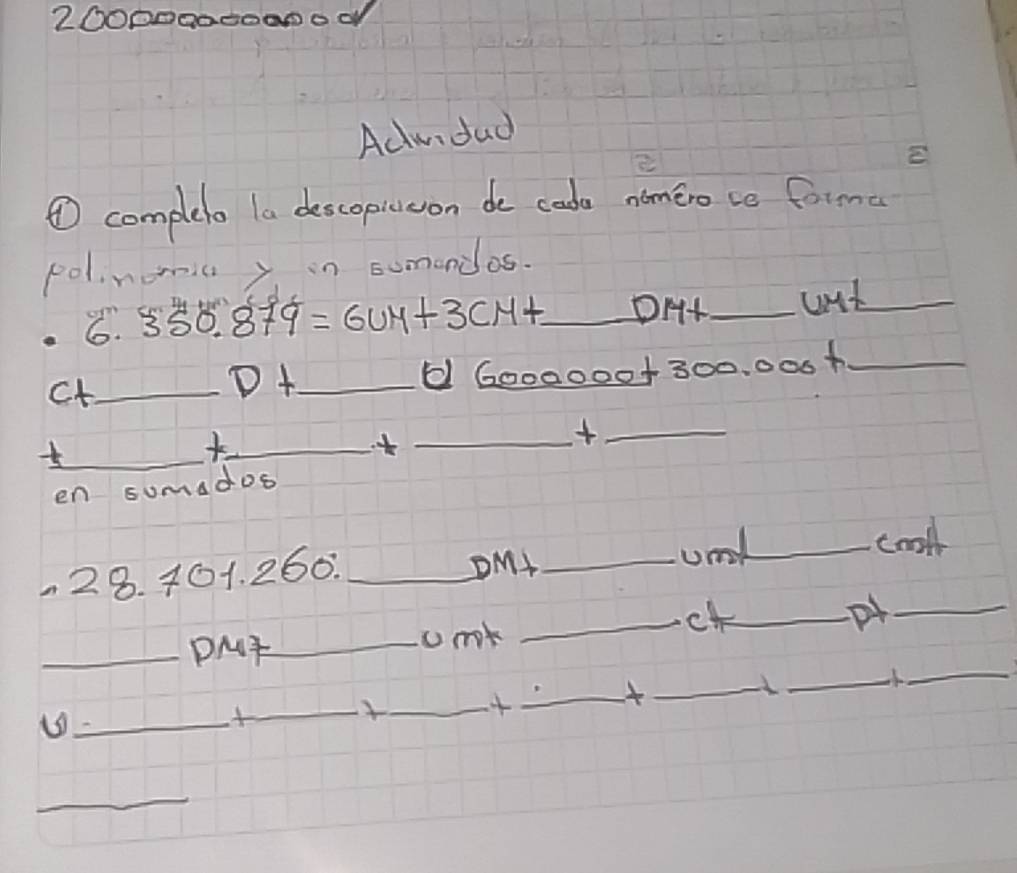 Actividad
① completo la descopicion de cada número se forma
polinomia y in sumandos.
• 6. 350.879 = 6UM+3CM+____DM+____UM+____
C+____D+____U 6000000+300.000+____
+____+____+____+____
en sumados
28.701.260:____DM+____um+____cm+
____DM+____um+____c+____D+____
U=____+____+____+____+____+____+____
____